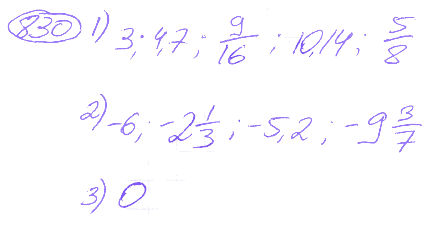 830 1) 3; 4,7; 9/16; 10,14; 5/8
2) -6; -2 1/3; -5,2; -9 3/7
3) 0